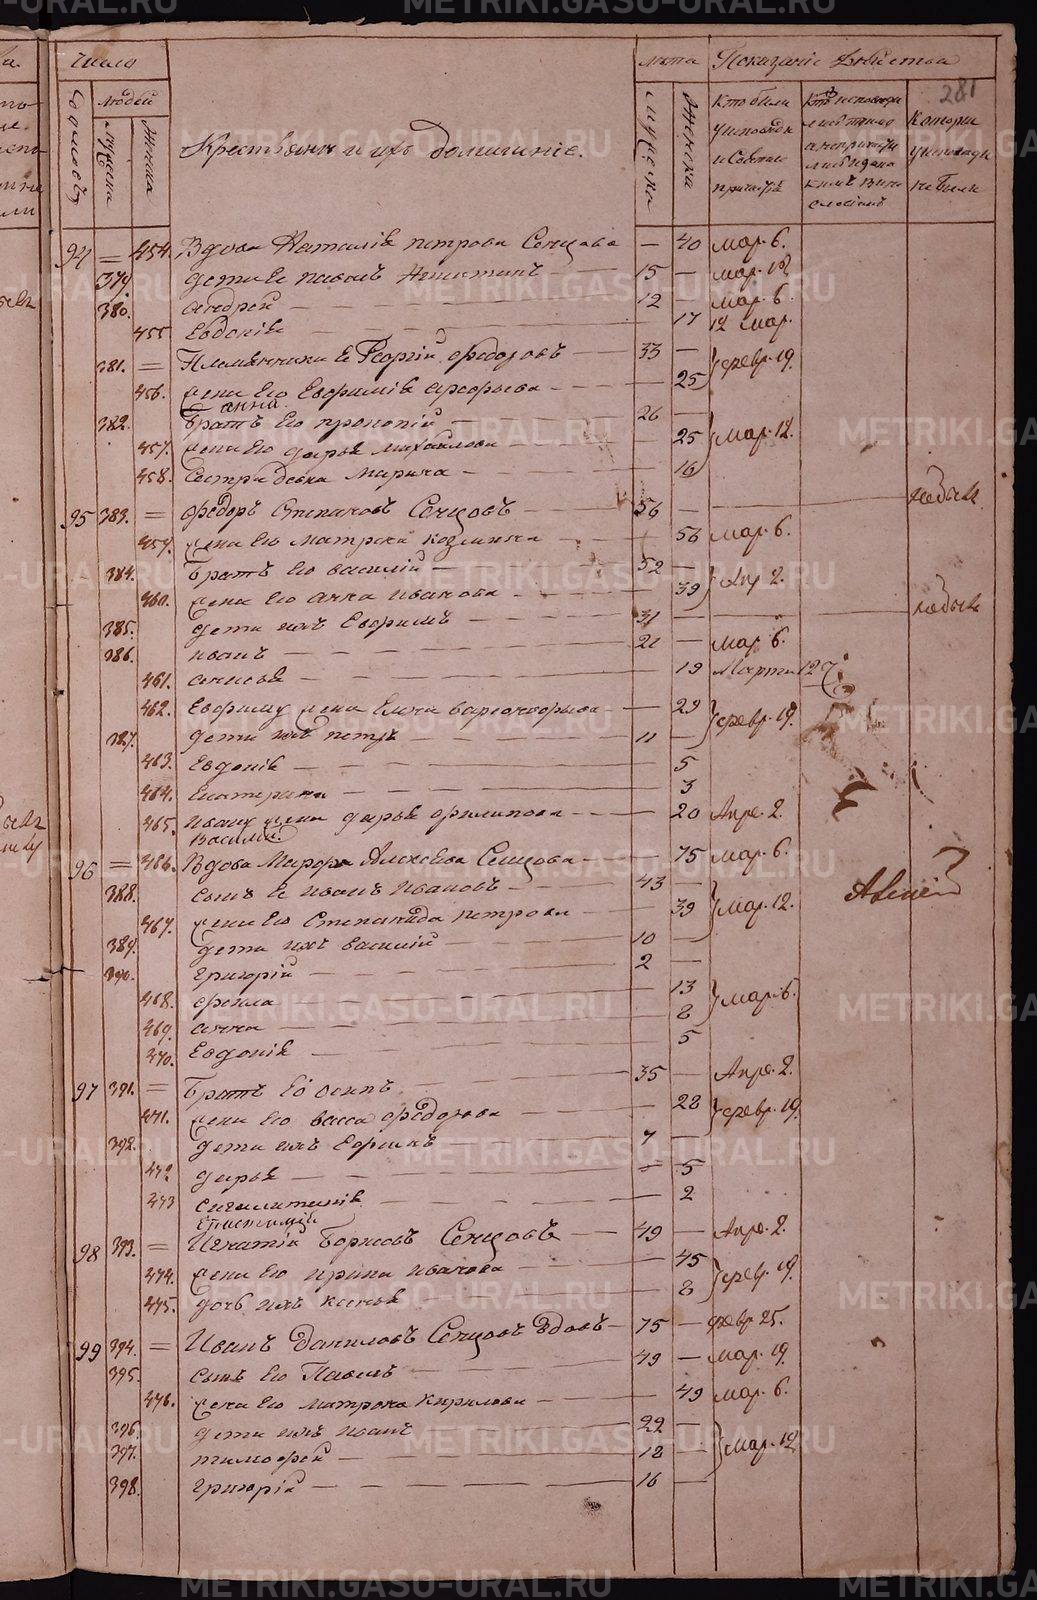 Число
лета Показание действа
281
домовъ
людей
мужеска
женска
Крестьяне и ихъ домашние.
мужеска
женска
кто были
у исповеди
и святаго
причастiя
кто исповеда
лись токмо
а не прича
кто
которы
у исповеди
не были
94 = 454. Вдова Наталiя петрова Сенцова — 40 мар. 6.
379. дети Ее павелъ Никитинъ 15 — мар. 12
380. андрей 12 — мар. 6
455 Евдокiя 17 12 мар.
381. = Племянники Ее Георгiй федоровъ 33 — февр. 19.
456. жена Его Евфимiя 25
анна
382. Братъ Его прокопiй 26 —
457. жена Его дарья михайлова — 25 мар. 12.
458. Сестра девка Марина — 16
95 383. = федоръ Степановъ Сенцовъ 56 — небылъ
459. жена Его матрена козмина — 56 мар. 6.
384. Братъ Его василiй 52 — Апр 2.
460. жена Его анна иванова — 39
385. дети ихъ Евфимъ 31 — небылъ
386. иванъ 21 — мар. 6.
461. анисья 19 марта 12
462. Евфиму жена Елена — 29 февр. 19.
387. дети ихъ петръ 11 —
463. Евдокiя 5
464. Екатерина 3
465. ивану жена дарья филипова — 20 Апре. 2.
Василий
96 = 466. Вдова Марфа Алексеева Сенцова — 75 мар. 6.
388. сынъ Ее иванъ ивановъ 43 —
467. жена Его Степанида петрова — 39 мар. 12.
389. дети ихъ василiй 10 —
390. григорiй 2 —
468. фекла 13 мар. 6.
469. анна 8
470. Евдокiя 5
97 391. = Братъ Его осипъ 35 — Апре. 2.
471. жена Его васса федорова — 28 февр. 19.
392. дети ихъ Ефимъ 7 —
472 дарья — 5
473 2
98 393. = Игнатiй Борисовъ Сенцовъ 49 — Апре. 2.
474. жена Его ирина иванова — 45 февр. 19.
475. дочь ихъ ксенья — 8
99 394. = Иванъ Даниловъ Сенцовъ вдовъ 75 — февр 25.
395. сынъ Его Павелъ 49 — мар. 19.
476. жена Его матрона Кирилова — 49 мар. 6.
396. дети ихъ иванъ 22 —
397. тимофей 18 — мар. 12
398. григорiй 16 —
METRIKI.GASO-URAL.RU